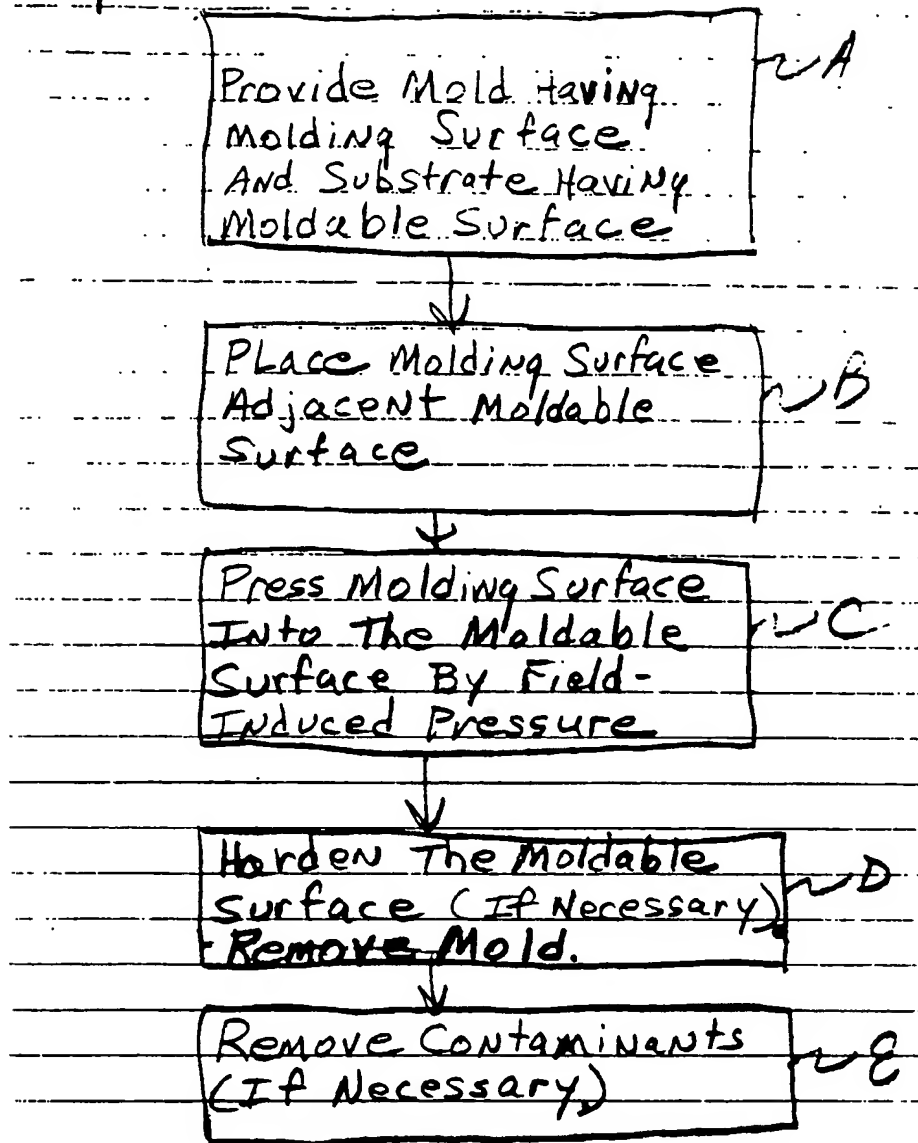 Provide Mold Having
Molding Surface
And Substrate Having
Moldable Surface
A
Place Molding Surface
Adjacent Moldable
Surface
B
Press Molding Surface
Into The Moldable
Surface By Field-
Induced Pressure
C
Harden The Moldable
Surface (If Necessary).
Remove Mold.
D
Remove Contaminants
(If Necessary)
E